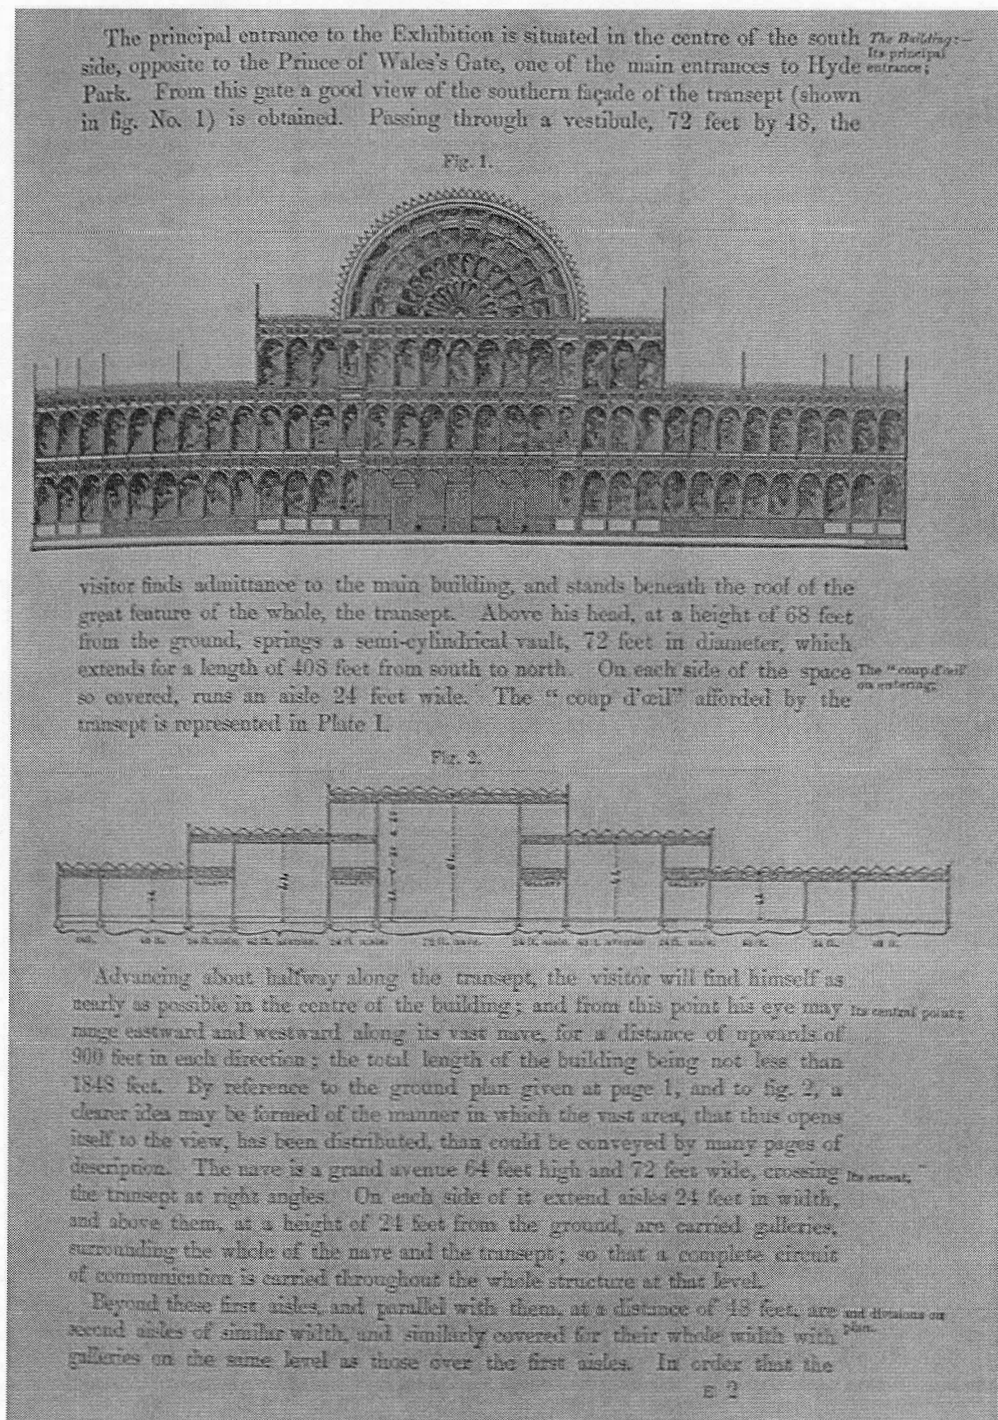 The principal entrance to the Exhibition is situated in the centre of the south
The Building:—
Its principal
entrance;
side, opposite to the Prince of Wales's Gate, one of the main entrances to Hyde
Park. From this gate a good view of the southern façade of the transept (shown
in fig. No. 1) is obtained. Passing through a vestibule, 72 feet by 48, the
Fig. 1.
visitor finds admittance to the main building, and stands beneath the roof of the
great feature of the whole, the transept. Above his head, at a height of 68 feet
from the ground, springs a semi-cylindrical vault, 72 feet in diameter, which
extends for a length of 408 feet from south to north. On each side of the space
The "coup d'œil"
on entering;
so covered, runs an aisle 24 feet wide. The "coup d'œil" afforded by the
transept is represented in Plate I.
Fig. 2.
GALLERY GALLERY GALLERY GALLERY
24 ft. aisle. 24 ft. aisle. 72 ft. nave. 24 ft. aisle. 24 ft. aisle. 24 ft. 48 ft.
Advancing about halfway along the transept, the visitor will find himself as
nearly as possible in the centre of the building; and from this point his eye may
Its central point;
range eastward and westward along its vast nave, for a distance of upwards of
900 feet in each direction; the total length of the building being not less than
1848 feet. By reference to the ground plan given at page 1, and to fig. 2, a
clearer idea may be formed of the manner in which the vast area, that thus opens
itself to the view, has been distributed, than could be conveyed by many pages of
description. The nave is a grand avenue 64 feet high and 72 feet wide, crossing
Its extent,
the transept at right angles. On each side of it extend aisles 24 feet in width,
and above them, at a height of 24 feet from the ground, are carried galleries,
surrounding the whole of the nave and the transept; so that a complete circuit
of communication is carried throughout the whole structure at that level.
Beyond these first aisles, and parallel with them, at a distance of 48 feet, are
and divisions on
plan.
second aisles of similar width, and similarly covered for their whole width with
galleries on the same level as those over the first aisles. In order that the
E 2